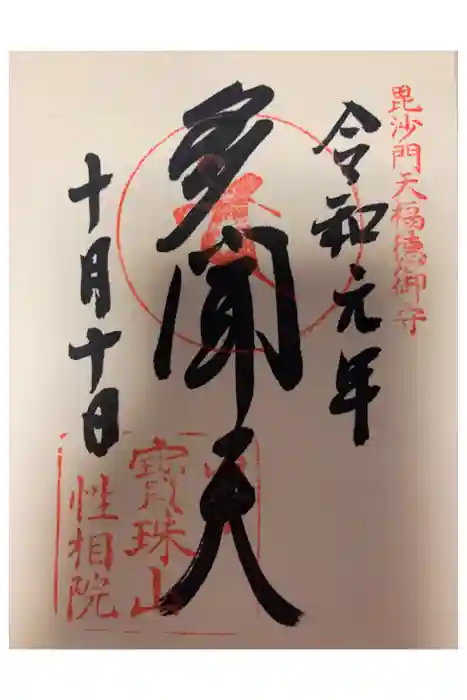 毘沙門天福德御守
令和元年
多聞天
十月十日
寶珠山
性相院